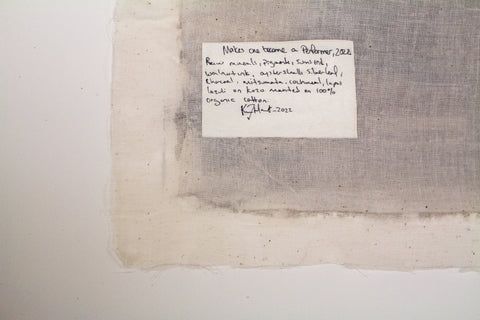 Makes one become a Performer, 2022
Raw minerals, pigments, sumi ink,
walnut ink, oyster shells silver leaf,
charcoal. mitsumata. cochineal, lapis
lazuli on kozo mounted on 100%
organic cotton.
2022